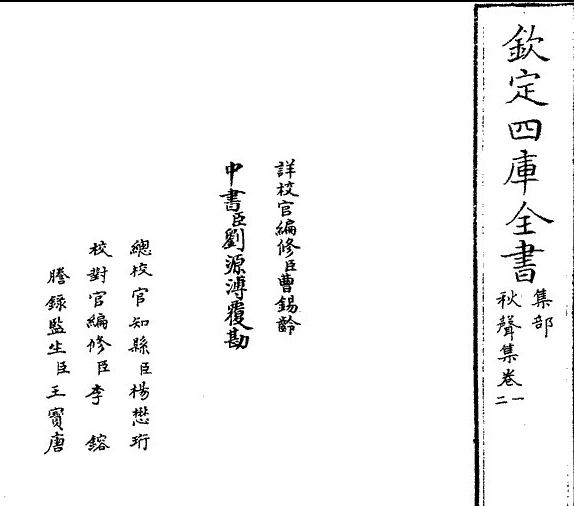 欽定四庫全書
集部
秋聲集卷一二
詳校官編修臣曹錫齡
中書臣劉源溥覆勘
總校官知縣臣楊懋珩
校對官編修臣李鎔
謄錄監生臣王寶唐